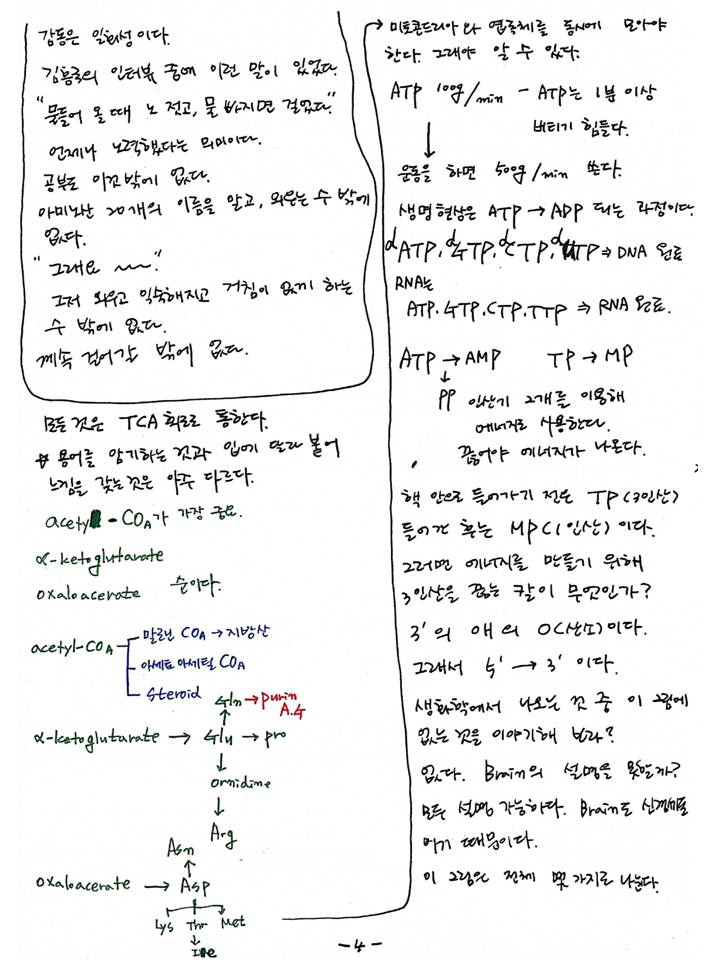 감동은 일회성이다.
김흥국의 인터뷰 중에 이런 말이 있었다.
"물들어 올 때 노 젓고, 물 빠지면 걸었다."
언제나 노력했다는 의미이다.
공부도 이것밖에 없다.
아미노산 20개의 이름을 알고, 외우는 수 밖에
없다.
"그래요 ~~."
그저 외우고 익숙해지고 거침이 없기 하는
수 밖에 없다.
계속 걸어갈 밖에 없다.
모든 것은 TCA 회로로 통한다.
☆ 용어를 암기하는 것과 입에 달라 붙어
느낌을 갖는것은 아주 다르다.
acetyl - COA가 가장 중요.
α-ketoglutarate
oxaloacerate 순이다.
acetyl-COA
말로닌 COA → 지방산
아세토아세틸 COA
Steroid
Gln → purin
A.G
α-ketoglutarate → Glu → pro
Ornidine
Arg
Asn
oxaloacerate → Asp
Lys Thr Met
Ile
→ 미토콘드리아와 엽록체를 동시에 모아야
한다. 그래야 알 수 있다.
ATP 100g/min - ATP는 1분 이상
버티기 힘들다.
운동을 하면 500g/min 쓴다.
생명현상은 ATP → ADP 되는 과정이다.
dATP, dGTP, dCTP, dUTP ⇒ DNA 원료
RNA는
ATP. GTP. CTP. TTP ⇒ RNA 원료.
ATP → AMP TP → MP
PP 인산기 2개를 이용해
에너지로 사용한다.
끊어야 에너지가 나온다.
핵 안으로 들어가기 전은 TP(3인산)
들어간 후는 MP(1인산)이다.
그러면 에너지를 만들기 위해
3인산을 끊는 칼이 무엇인가?
3'의 애의 O(산소)이다.
그래서 5' → 3' 이다.
생화학에서 나오는 것 중 이 그림에
없는 것을 이야기해 보라?
없다. Brain의 설명을 못할까?
모두 설명 가능하다. Brain도 신경세포
이기 때문이다.
이 그림은 전체 몇 가지로 나눈다.
- 4 -